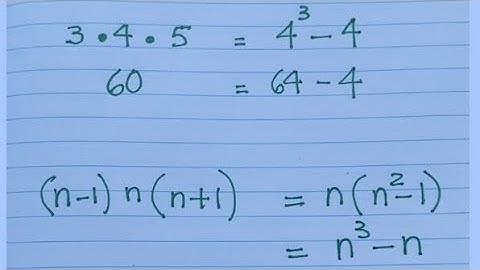 3 • 4 • 5 = 4³ − 4
60 = 64 − 4
(n−1) n (n+1) = n (n²−1)
= n³ − n